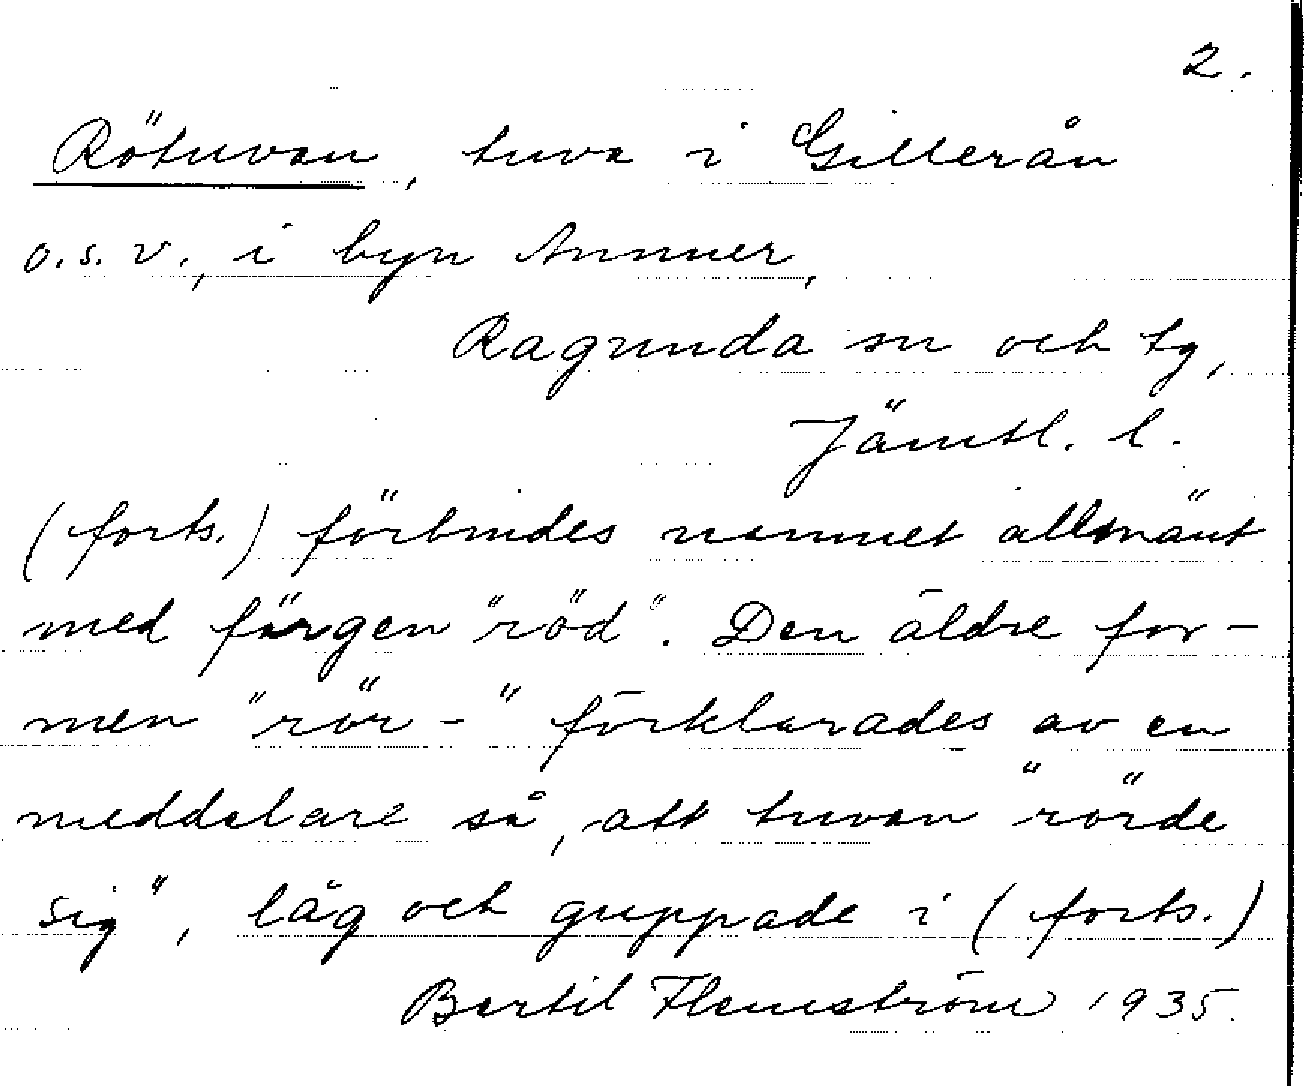 2.
Rötuvan, tuva i Gillerån
o.s.v., i byn Ammer,
Ragunda sn och tg,
Jämtl. l.
(forts.) förbindes namnet allmänt
med färgen "röd". Den äldre for-
men "rör-" förklarades av en
meddelare så, att tuvan "rörde
sig", låg och guppade i (forts.)
Bertil Flemström 1935.